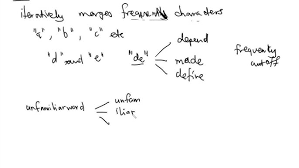 iteratively merges frequently characters
"a", "b", "c" etc
"d" and "e" "de"
depend
made
define
frequently
cutoff
unfam
iliar